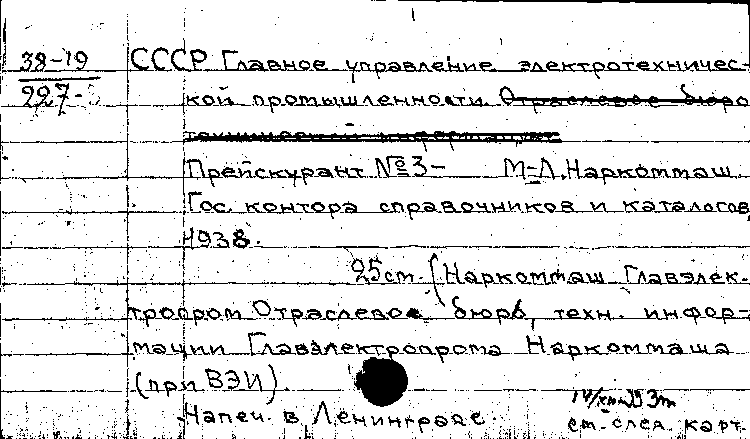 38-19 СССР Главное управление электротехничес-
227- кой промышленности. Отраслевое бюро
технической информации
Прейскурант №3- М-Л, Наркоммаш.
Гос. контора справочников и каталогов,
1938.
25 см. (Наркоммаш Главэлек-
тропром Отраслевое бюро, техн. инфор-
мации Главэлектропрома Наркоммаша
(при ВЭИ).
Напеч. в Ленинграде.
см. след. карт.